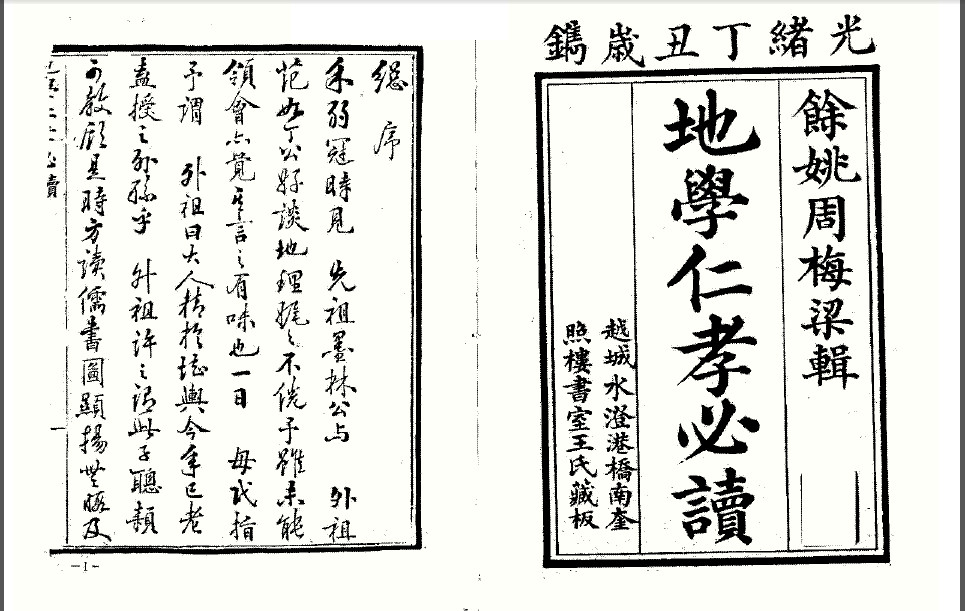 光緒丁丑歲鐫
餘姚周梅梁輯
地學仁孝必讀
越城水澄港橋南奎
照樓書室王氏藏板
總序
余弱冠時見 先祖墨林公与 外祖
范如一公好談地理娓之不倦予雖未能
領會亦覺其言之有味也一日 母氏指
予謂 外祖曰大人精於堪輿今年已老
盍授之外孫乎 外祖許之謂此子聰穎
可教顧是時方讀儒書圖顯揚無暇及
-1-